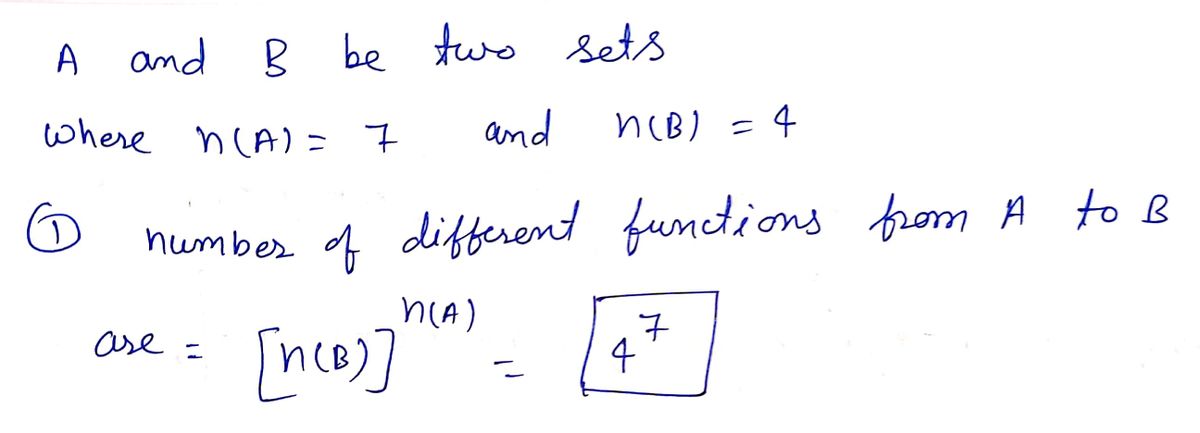 A and B be two sets
where n(A) = 7 and n(B) = 4
① number of different functions from A to B
are = [n(B)]^n(A) = 4^7